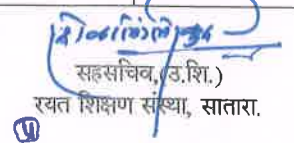 सहसचिव,(उ.शि.)
रयत शिक्षण संस्था, सातारा.